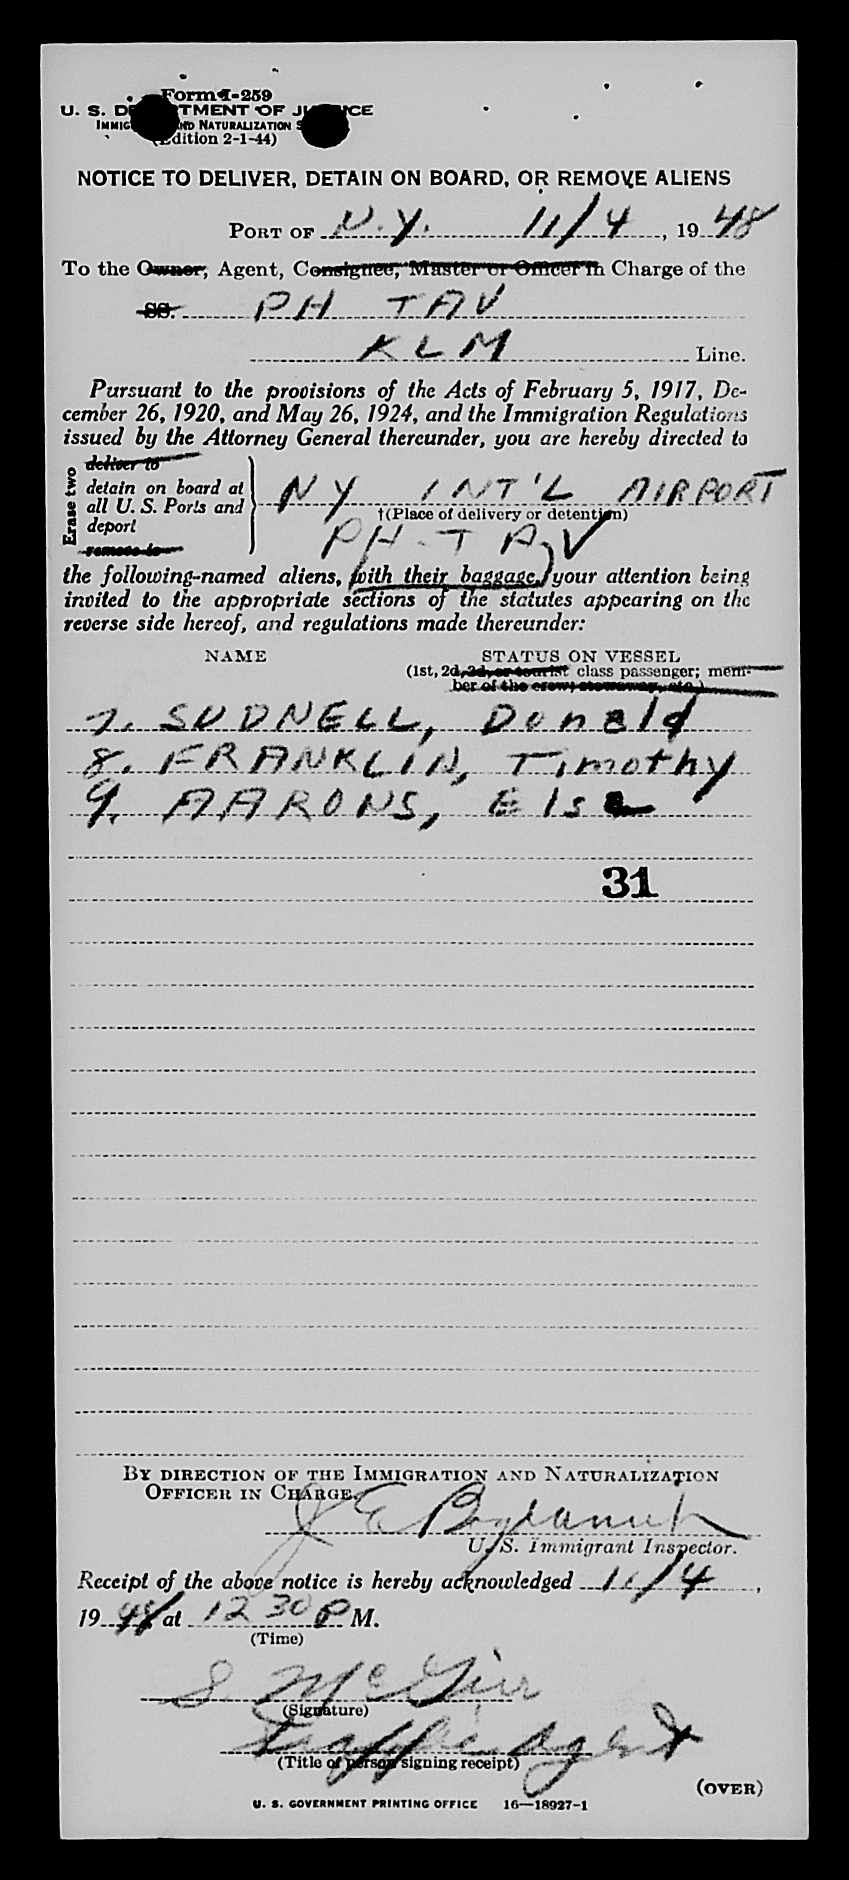 Form I-259
U. S. DEPARTMENT OF JUSTICE
IMMIGRATION AND NATURALIZATION S
(Edition 2-1-44)
NOTICE TO DELIVER, DETAIN ON BOARD, OR REMOVE ALIENS
PORT OF N.Y. 11/4, 1948
To the Owner, Agent, Consignee, Master or Officer in Charge of the
SS. PH TAV
KLM Line.
Pursuant to the provisions of the Acts of February 5, 1917, De-
cember 26, 1920, and May 26, 1924, and the Immigration Regulations
issued by the Attorney General thereunder, you are hereby directed to
Erase two
deliver to
detain on board at
all U. S. Ports and
deport
remove to
NY INT'L AIRPORT
†(Place of delivery or detention)
PH-TAV
the following-named aliens, with their baggage, your attention being
invited to the appropriate sections of the statutes appearing on the
reverse side hereof, and regulations made thereunder:
NAME STATUS ON VESSEL
(1st, 2d, 3d, or tourist class passenger; mem-
ber of the crew; stowaway, etc.)
7. SUDNELL, Donald
8. FRANKLIN, Timothy
9. AARONS, Elsa
31
BY DIRECTION OF THE IMMIGRATION AND NATURALIZATION
OFFICER IN CHARGE.
J E
U. S. Immigrant Inspector.
Receipt of the above notice is hereby acknowledged 11/4,
1948 at 12 30 P M.
(Time)
S. McGirr
(Signature)
Traffic Agent
(Title of person signing receipt)
(OVER)
U. S. GOVERNMENT PRINTING OFFICE 16—18927-1